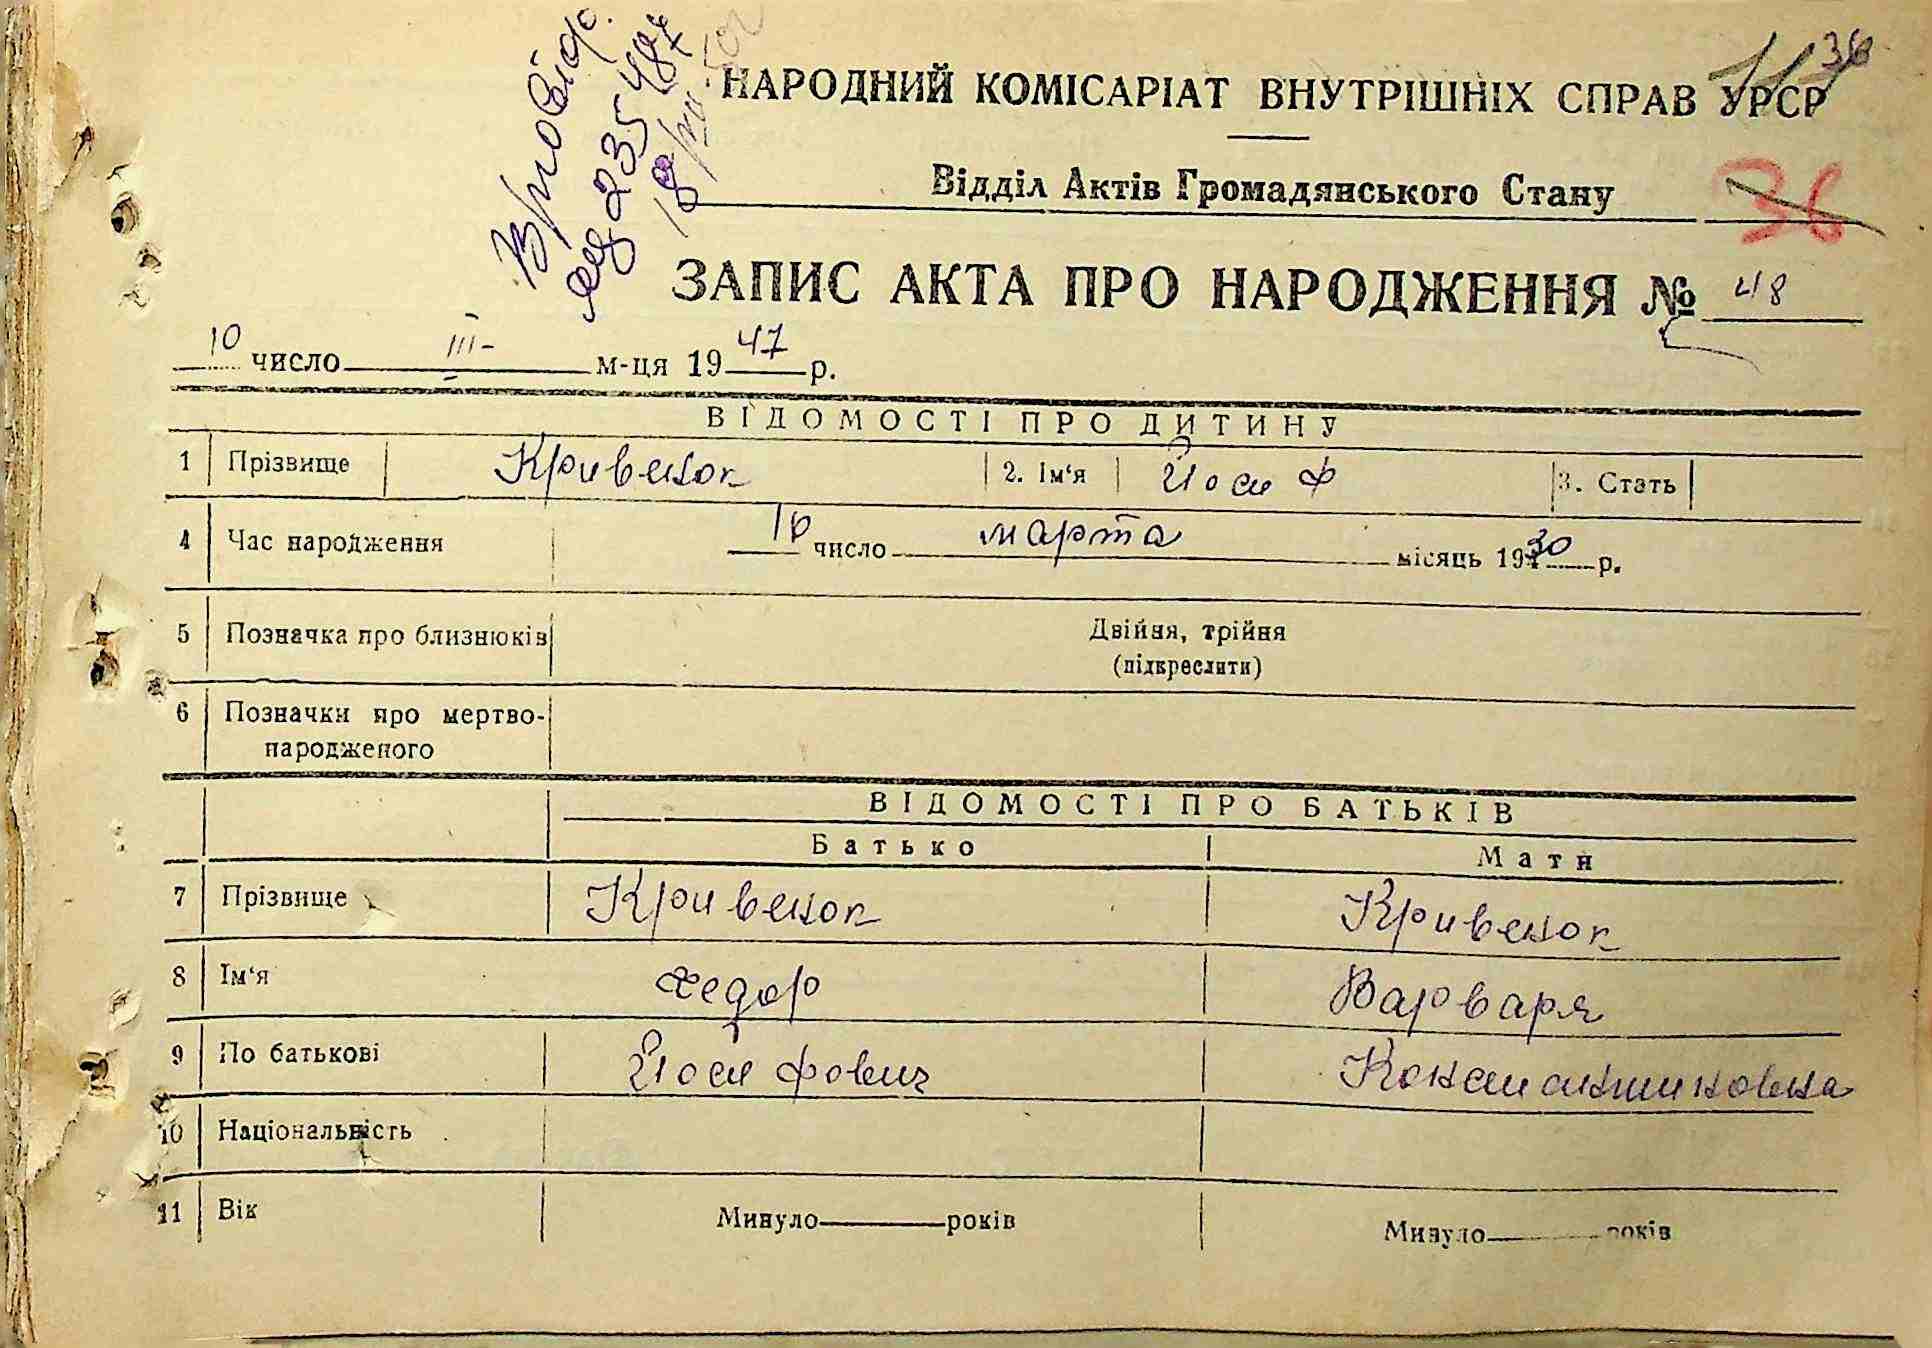 36
НАРОДНИЙ КОМІСАРІАТ ВНУТРІШНІХ СПРАВ УРСР
Відділ Актів Громадянського Стану
36
ЗАПИС АКТА ПРО НАРОДЖЕННЯ № 48
10 число III м-ця 1947 р.
ВІДОМОСТІ ПРО ДИТИНУ
1 Прізвище Кривенок 2. Ім'я Йосиф 3. Стать
4 Час народження число марта місяць 1930 р.
5 Позначка про близнюків Двійня, трійня
(підкреслити)
6 Позначки про мертво-
народженого
ВІДОМОСТІ ПРО БАТЬКІВ
Батько Мати
7 Прізвище Кривенок Кривенок
8 Ім'я Федор Варваря
9 По батькові Йосифович Константиновна
10 Національність
11 Вік Минуло років Минуло років